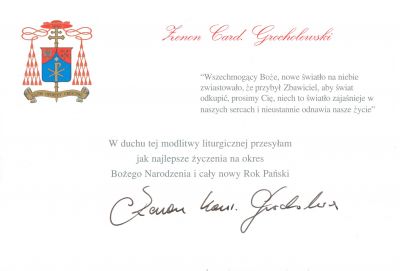 Zenon Card. Grocholewski
“Wszechmogący Boże, nowe światło na niebie
zwiastowało, że przybył Zbawiciel, aby świat
odkupić, prosimy Cię, niech to światło zajaśnieje w
naszych sercach i nieustannie odnawia nasze życie”
W duchu tej modlitwy liturgicznej przesyłam
jak najlepsze życzenia na okres
Bożego Narodzenia i cały nowy Rok Pański
Zenon Kard. Grocholewski